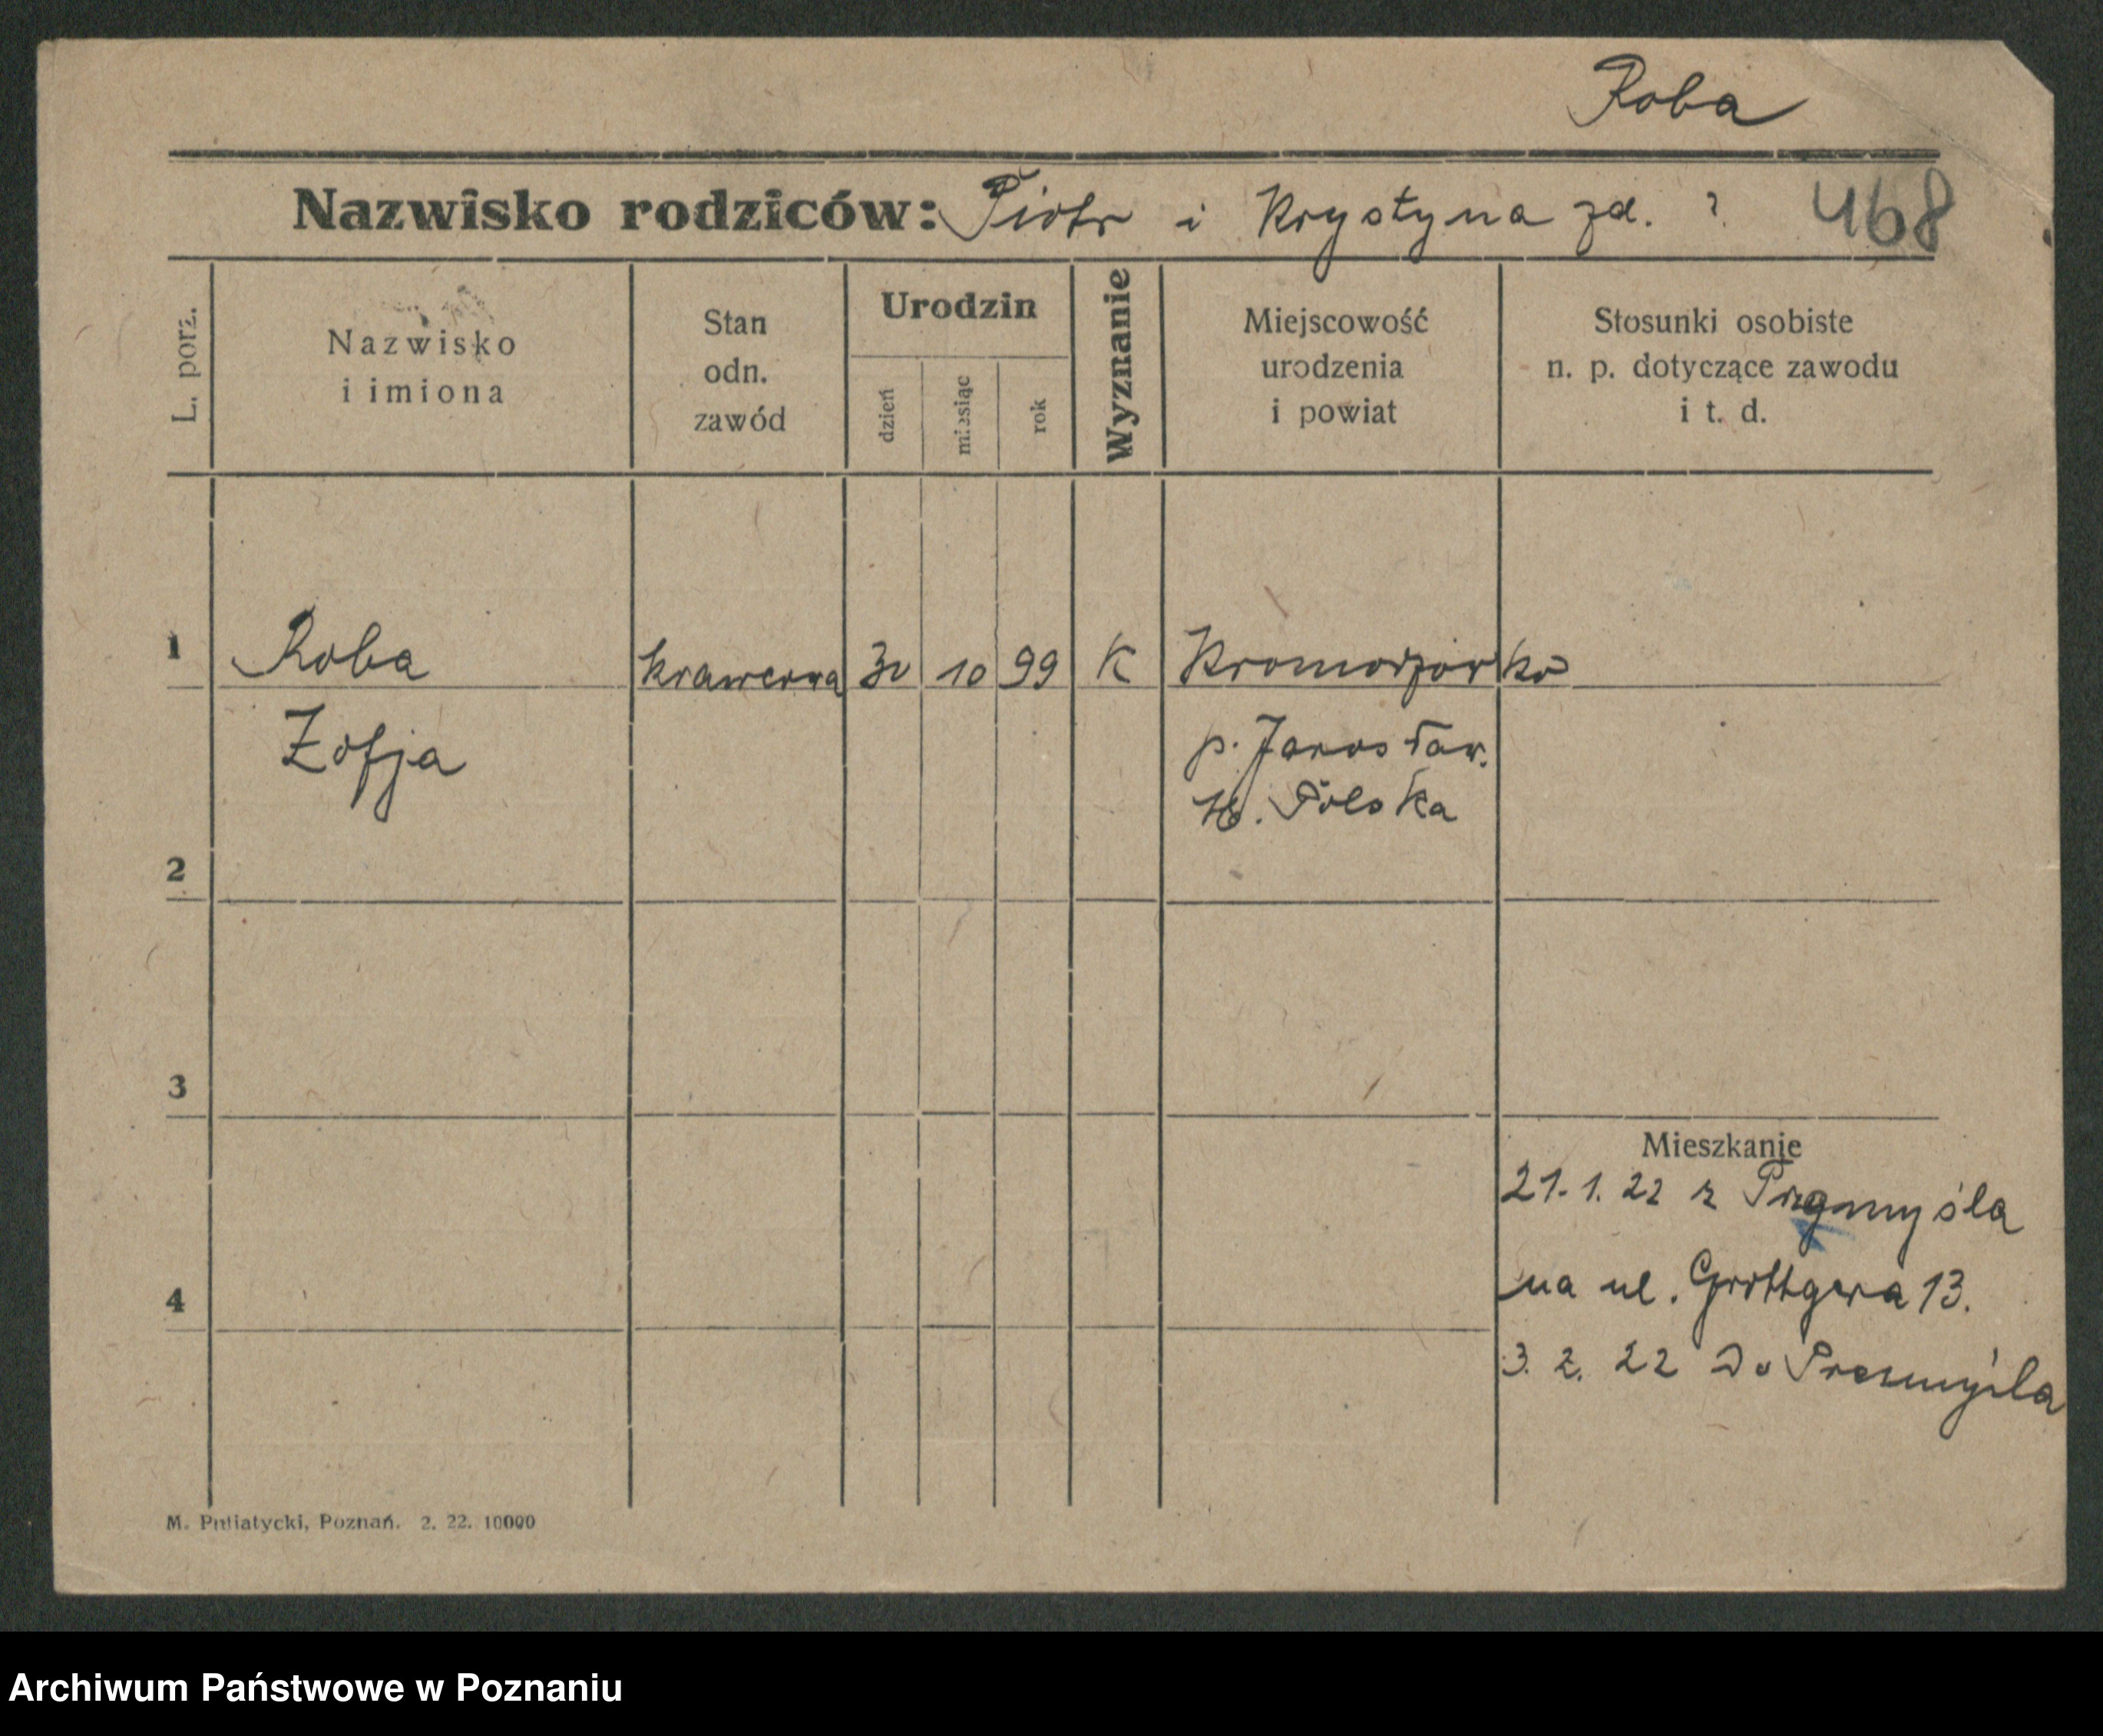 Roba
Nazwisko rodziców: Piotr i Krystyna zd. ? 468
L. porz.
Nazwisko
i imiona
Stan
odn.
zawód
Urodzin
dzień
miesiąc
rok
Wyznanie
Miejscowość
urodzenia
i powiat
Stosunki osobiste
n. p. dotyczące zawodu
i t. d.
1 Roba krawcowa 30 10 99 K
Zofja
p. Jarosław.
Polska
2
3
4
Mieszkanie
21. 1. 22 z Przemyśla
na ul. Grottgera 13.
3. 2. 22 Do Przemyśla
M. Putiatycki, Poznań. 2. 22. 10000
Archiwum Państwowe w Poznaniu